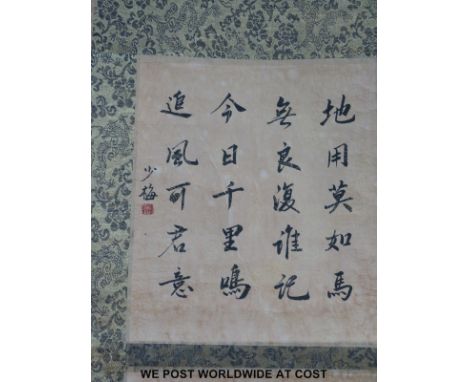 地用莫如馬
無良復誰記
今日千里鳴
追風可君意
少梅
WE POST WORLDWIDE AT COST